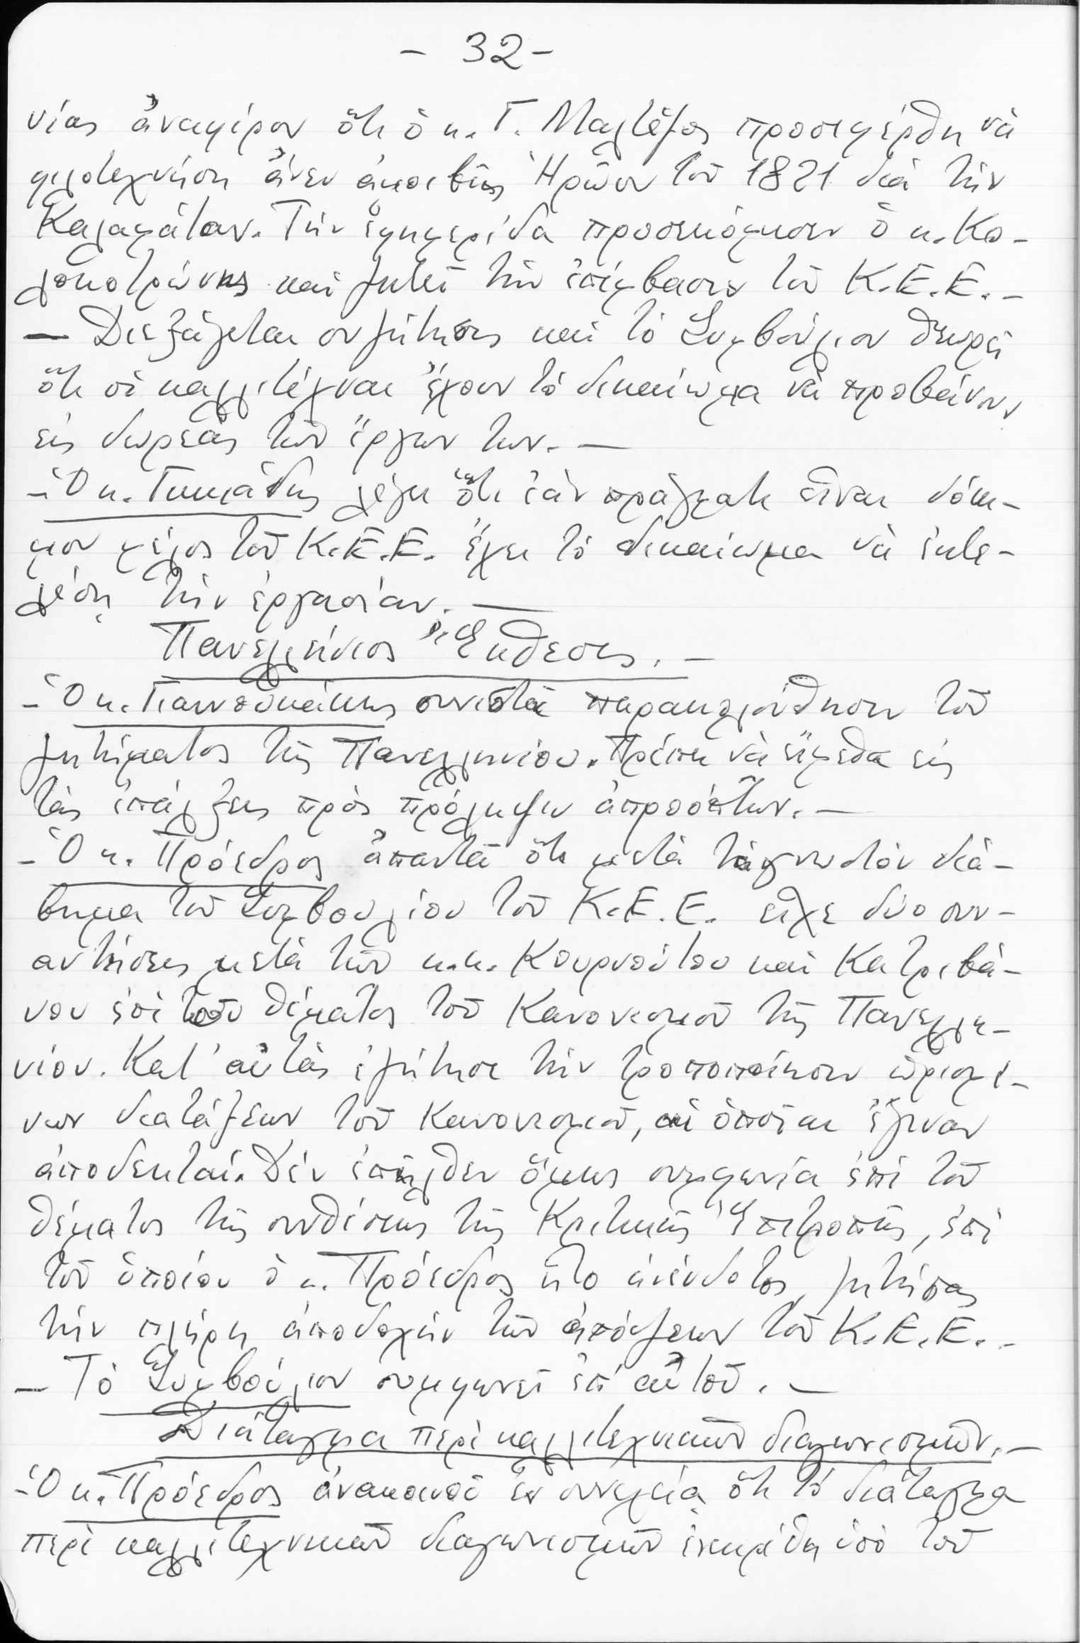 - 32 -
νίας ἀναφέρον ὅτι ὁ κ. Γ. Μαλτέζος προσεφέρθη νὰ
φιλοτεχνήσῃ ἄνευ ἀμοιβῆς Ἡρῶον τοῦ 1821 διὰ τὴν
Καλαμάταν. Τὴν ἐφημερίδα προσεκόμισεν ὁ κ. Κο-
λοκοτρώνης καὶ ζητεῖ τὴν ἐπέμβασιν τοῦ Κ.Ε.Ε. -
— Διεξάγεται συζήτησις καὶ τὸ Συμβούλιον θεωρεῖ
ὅτι οἱ καλλιτέχναι ἔχουν τὸ δικαίωμα νὰ προβαίνουν
εἰς δωρεὰς τῶν ἔργων των. —
- Ὁ κ. λέγει ὅτι ἐὰν πράγματι εἶναι νόμι-
μον μέλος τοῦ Κ.Ε.Ε. ἔχει τὸ δικαίωμα νὰ ἐκτε-
λέσῃ τὴν ἐργασίαν. —
Πανελλήνιος Ἔκθεσις. -
- Ὁ κ. Γιαννουκάκης συνιστᾶ παρακολούθησιν τοῦ
ζητήματος τῆς Πανελληνίου. Πρέπει νὰ εἴμεθα εἰς
τὰς ἐπάλξεις πρὸς πρόληψιν ἀπροόπτων. —
- Ὁ κ. Πρόεδρος ἀπαντᾶ ὅτι μετὰ τὸ γνωστὸν διά-
βημα τοῦ Συμβουλίου τοῦ Κ.Ε.Ε. εἶχε δύο συν-
αντήσεις μετὰ τῶν κ.κ. Κουρνούτου καὶ Κατριβά-
νου ἐπὶ τοῦ θέματος τοῦ Κανονισμοῦ τῆς Πανελλη-
νίου. Κατ' αὐτὰς ἐζήτησε τὴν τροποποίησιν ὡρισμέ-
νων διατάξεων τοῦ Κανονισμοῦ, αἱ ὁποῖαι ἔγιναν
ἀποδεκταί. Δὲν ἐπῆλθεν ὅμως συμφωνία ἐπὶ τοῦ
θέματος τῆς συνθέσεως τῆς Κριτικῆς Ἐπιτροπῆς, ἐπὶ
τοῦ ὁποίου ὁ κ. Πρόεδρος ἦτο ἀνένδοτος, ζητήσας
τὴν πλήρη ἀποδοχὴν τῶν ἀπόψεων τοῦ Κ.Ε.Ε. -
- Τὸ Συμβούλιον συμφωνεῖ ἐπ' αὐτοῦ. -
Διάταγμα περὶ καλλιτεχνικῶν διαγωνισμῶν. -
- Ὁ κ. Πρόεδρος ἀνακοινοῖ ἐν συνεχείᾳ ὅτι τὸ διάταγμα
περὶ καλλιτεχνικῶν διαγωνισμῶν ἐνεκρίθη ὑπὸ τοῦ